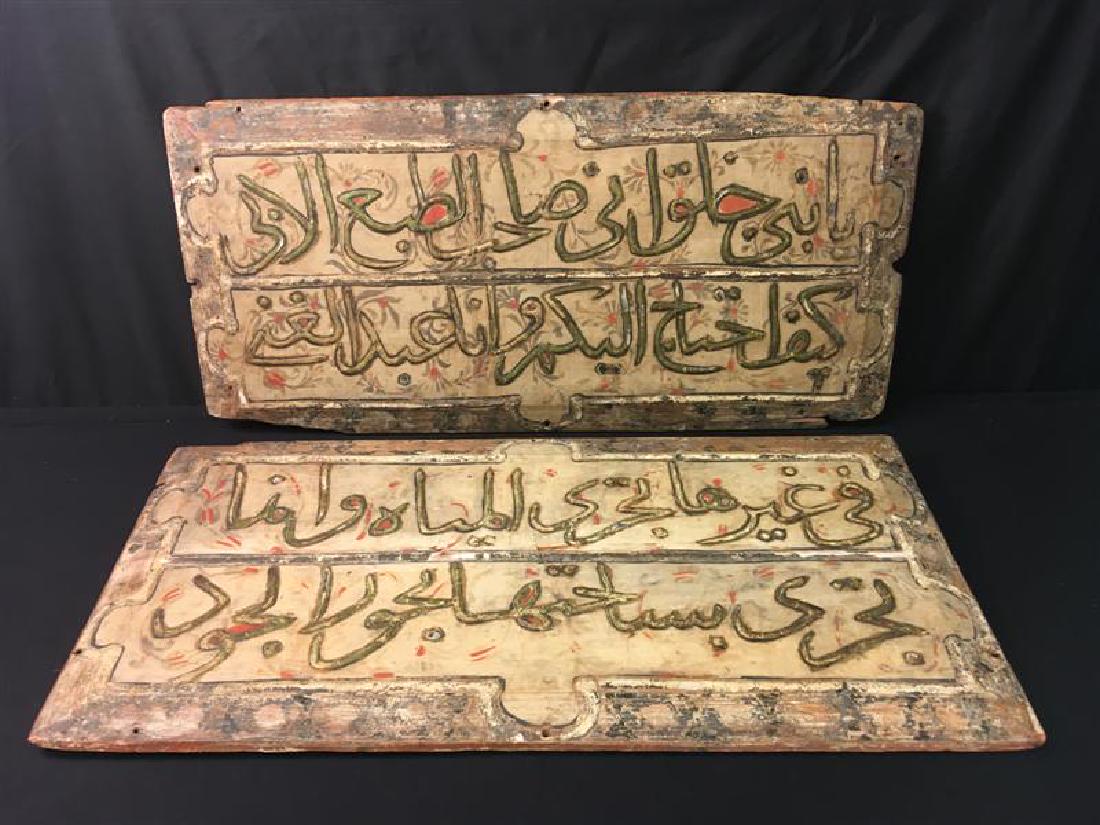 يا بني حلواني صاحب الطبع الابي
كيف احتاج اليكم وانا عبد الغني
في غيرها تجري المياه وانما
تجري بساحتها بحور الجود